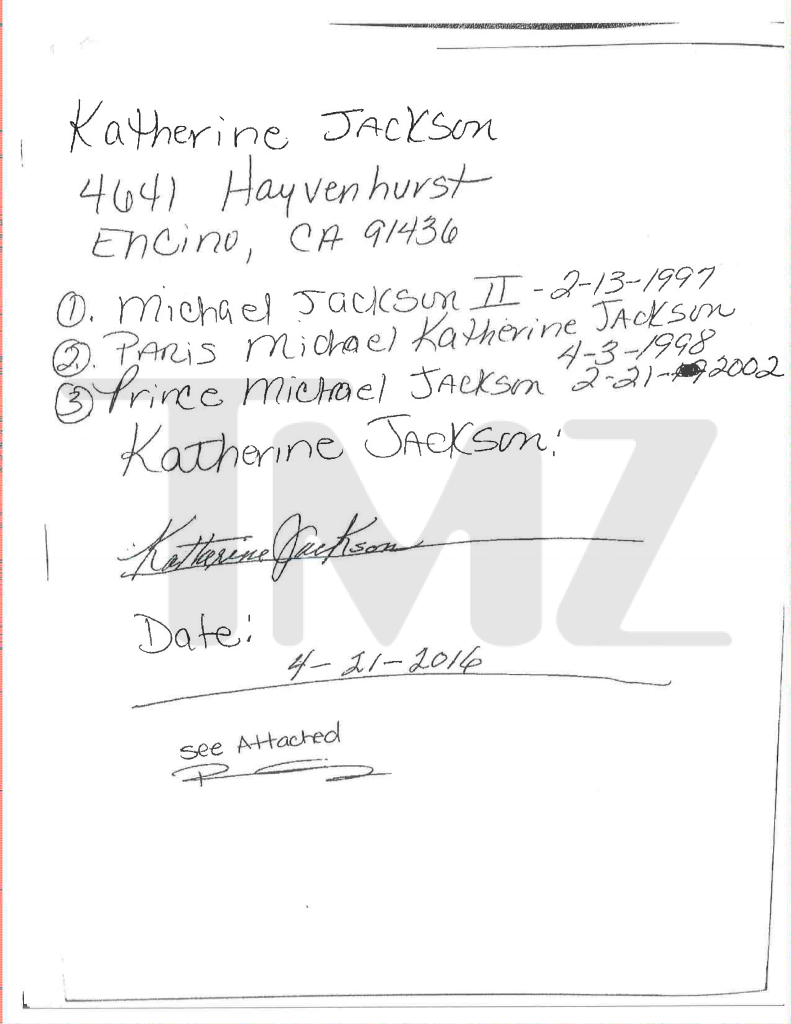 Katherine Jackson
4641 Hayvenhurst
Encino, CA 91436
①. Michael Jackson II - 2-13-1997
②. Paris Michael Katherine Jackson
4-3-1998
③ Prince Michael Jackson 2-21-2002
Katherine Jackson:
Katherine Jackson
Date:
4-21-2016
see Attached
TMZ